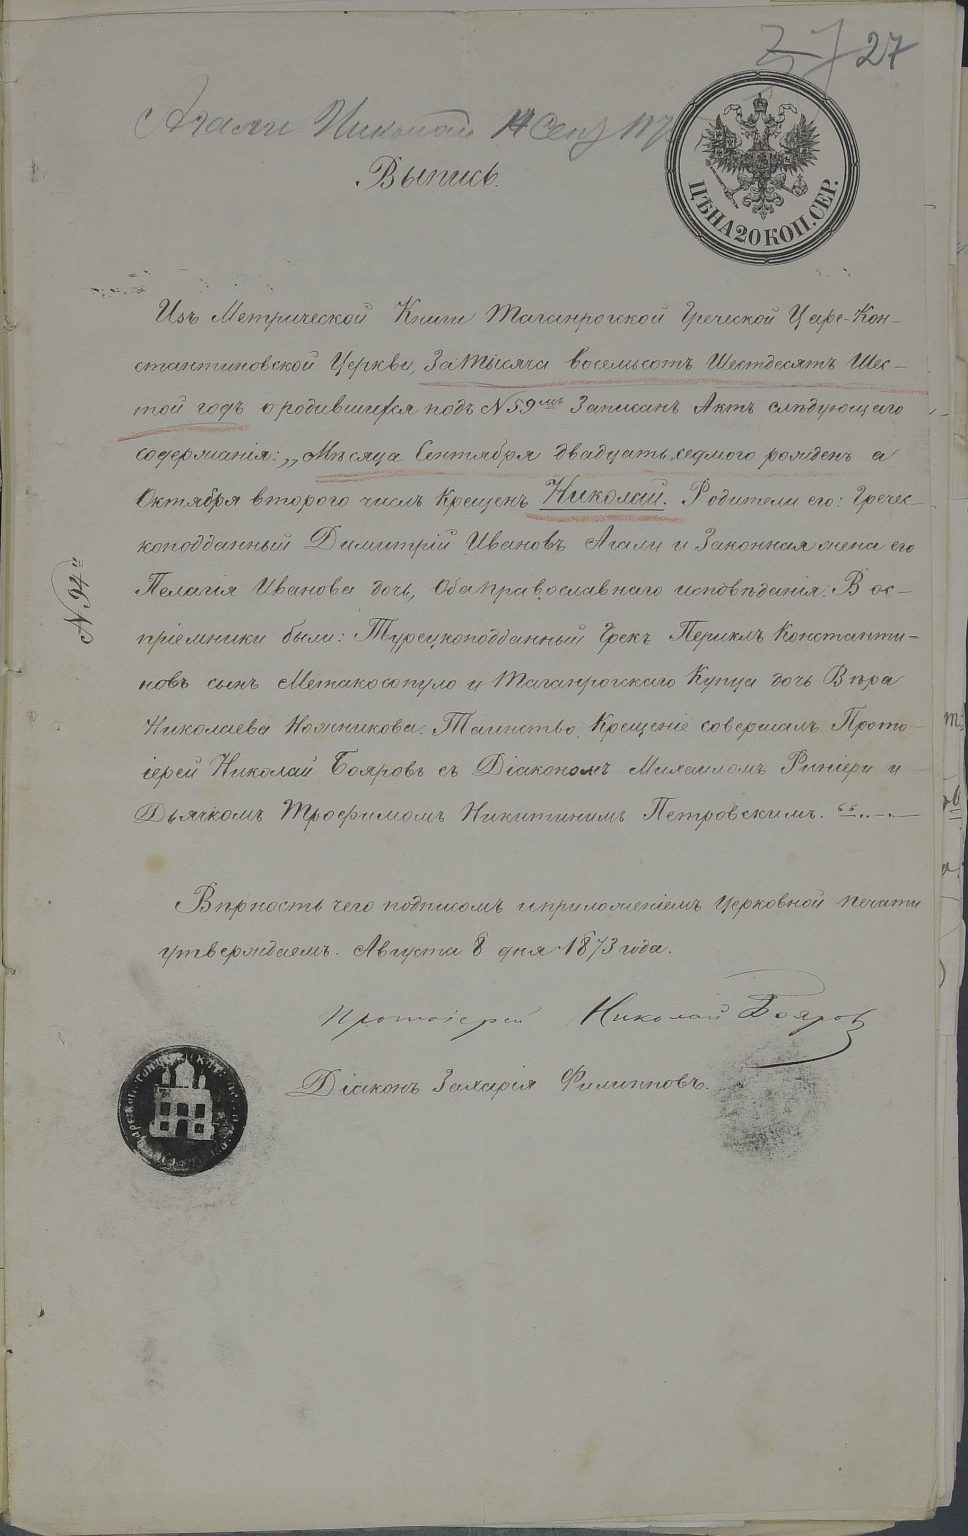 27
Агали Николай 14 Сен
Выпись.
ЦѢНА 20 КОП. СЕР.
Изъ Метрической Книги Таганрогской Греческой Царе-Кон-
стантиновской Церкви, За тысяча восемьсотъ Шестдесятъ Шес-
той годъ о родившихся подъ №59мъ Записанъ Актъ слѣдующаго
содержанія: „Мѣсяца Сентября двадцать седмого рожденъ а
Октября второго числъ Крещенъ Николай. Родители его: Гречес-
коподданный Димитрій Ивановъ Агали и Законная жена его
Пелагія Иванова дочь, Оба православнаго исповѣданія. Вос-
пріемники были: Турецкоподданный Грекъ Периклъ Константи-
новъ сынъ Метакосопуло и Таганрогскаго Купца дочь Вѣра
Николаева Ножникова. Таинство Крещеніе совершалъ Прото-
іерей Николай Бояровъ съ Діакономъ Михаиломъ Риніери и
Дьячкомъ Трофимомъ Никитинимъ Петровскимъ. “
Вѣрность чего подписомъ и приложеніемъ Церковной печати
утверждаемъ. Августа 8 дня 1873 года.
Протоіерей Николай Бояров
Діаконъ Захарія Филипповъ.
№ 94й